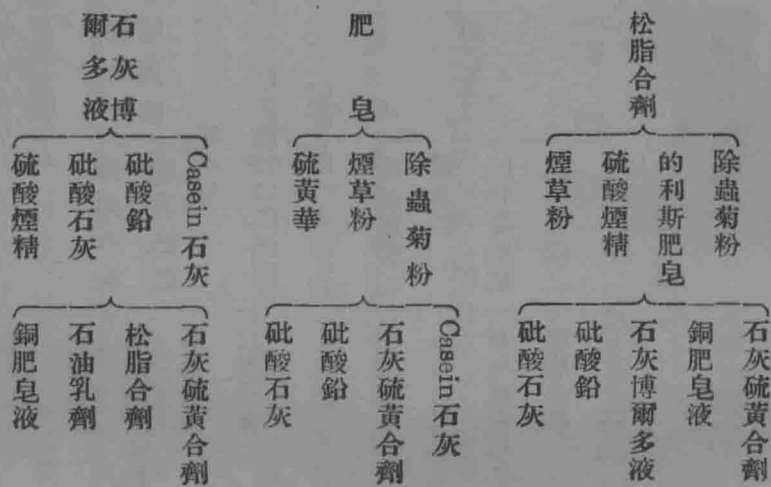 松脂合劑
除蟲菊粉
的利斯肥皂
硫酸煙精
煙草粉
石灰硫黃合劑
銅肥皂液
石灰博爾多液
砒酸鉛
砒酸石灰
肥皂
除蟲菊粉
煙草粉
硫黃華
Casein 石灰
石灰硫黃合劑
砒酸鉛
砒酸石灰
石灰博
爾多液
Casein 石灰
砒酸鉛
砒酸石灰
硫酸煙精
石灰硫黃合劑
松脂合劑
石油乳劑
銅肥皂液